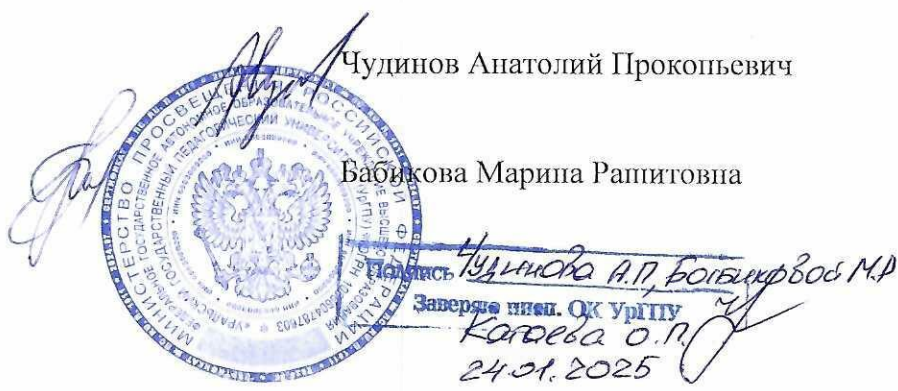 Чудинов Анатолий Прокопьевич
Бабикова Марина Рашитовна
МИНИСТЕРСТВО ПРОСВЕЩЕНИЯ РОССИЙСКОЙ ФЕДЕРАЦИИ
Подпись Чудинова А.П., Бабиковой М.Р
Заверяю инсп. ОК УрГПУ
Катаева О.П.
24.01.2025